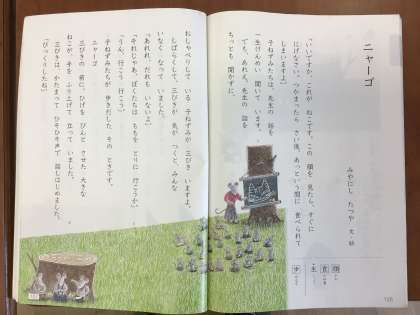 ニャーゴ
みやにし たつや 文・絵
「いいですか、これが ねこです。この 顔を 見たら、すぐに
にげなさい。つかまったら さい後、あっという間に 食べられて
しまいますよ。」
子ねずみたちは、先生の 話を
一生けんめい 聞いて います。
でも、あれえ、先生の 話を
ちっとも 聞かずに、
おしゃべりして いる 子ねずみが 三びき いますよ。
しばらくして、三びきが 気が つくと、みんな
いなく なって いました。
「あれれ、だれも いないよ。」
「それじゃあ、ぼくたちは ももを とりに 行こうか。」
「うん、行こう 行こう。」
子ねずみたちが 歩きだした その ときです。
ニャーゴ
三びきの 前に、ひげを ぴんと させた 大きな
ねこが、手を ふり上げて 立って いました。
三びきは、かたまって ひそひそ声で 話しはじめました。
「びっくりしたね。」
顔
食
生
歩